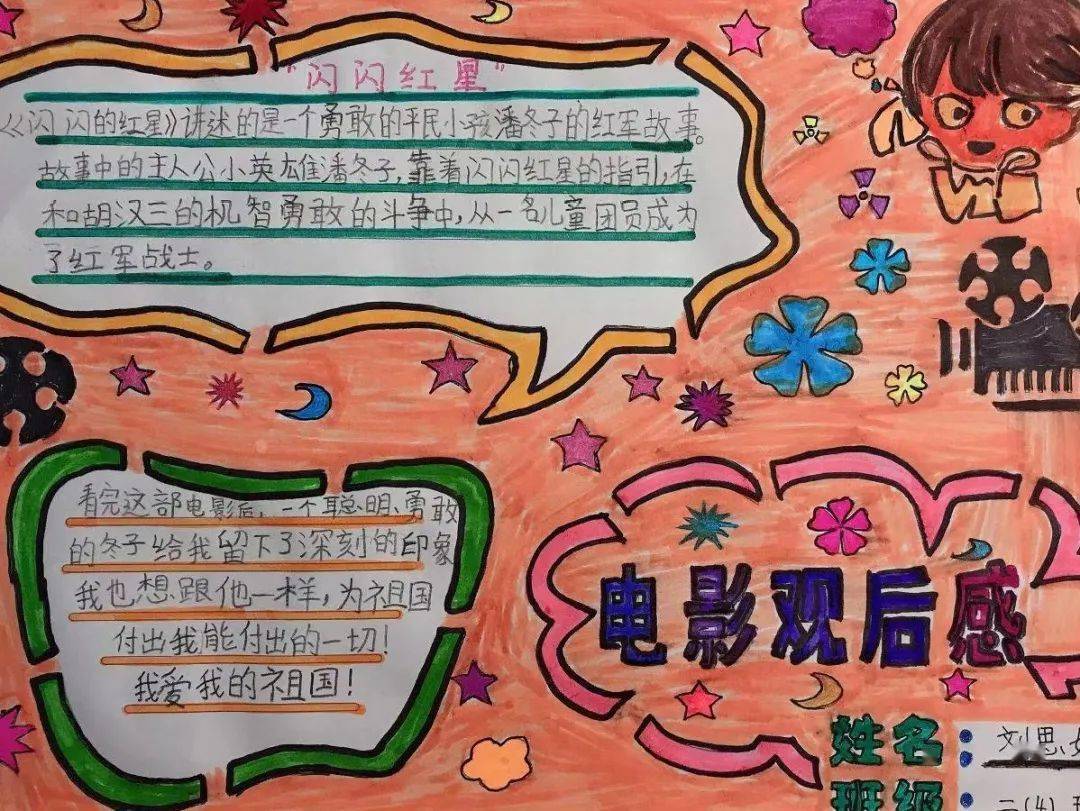 “闪闪红星”
《闪闪的红星》讲述的是一个勇敢的平民小孩潘冬子的红军故事。
故事中的主人公小英雄潘冬子,靠着闪闪红星的指引,在
和胡汉三的机智勇敢的斗争中,从一名儿童团员成为
了红军战士。
看完这部电影后,一个聪明、勇敢
的冬子给我留下了深刻的印象
我也想跟他一样,为祖国
付出我能付出的一切!
我爱我的祖国!
电影观后感
姓名
刘思
班级